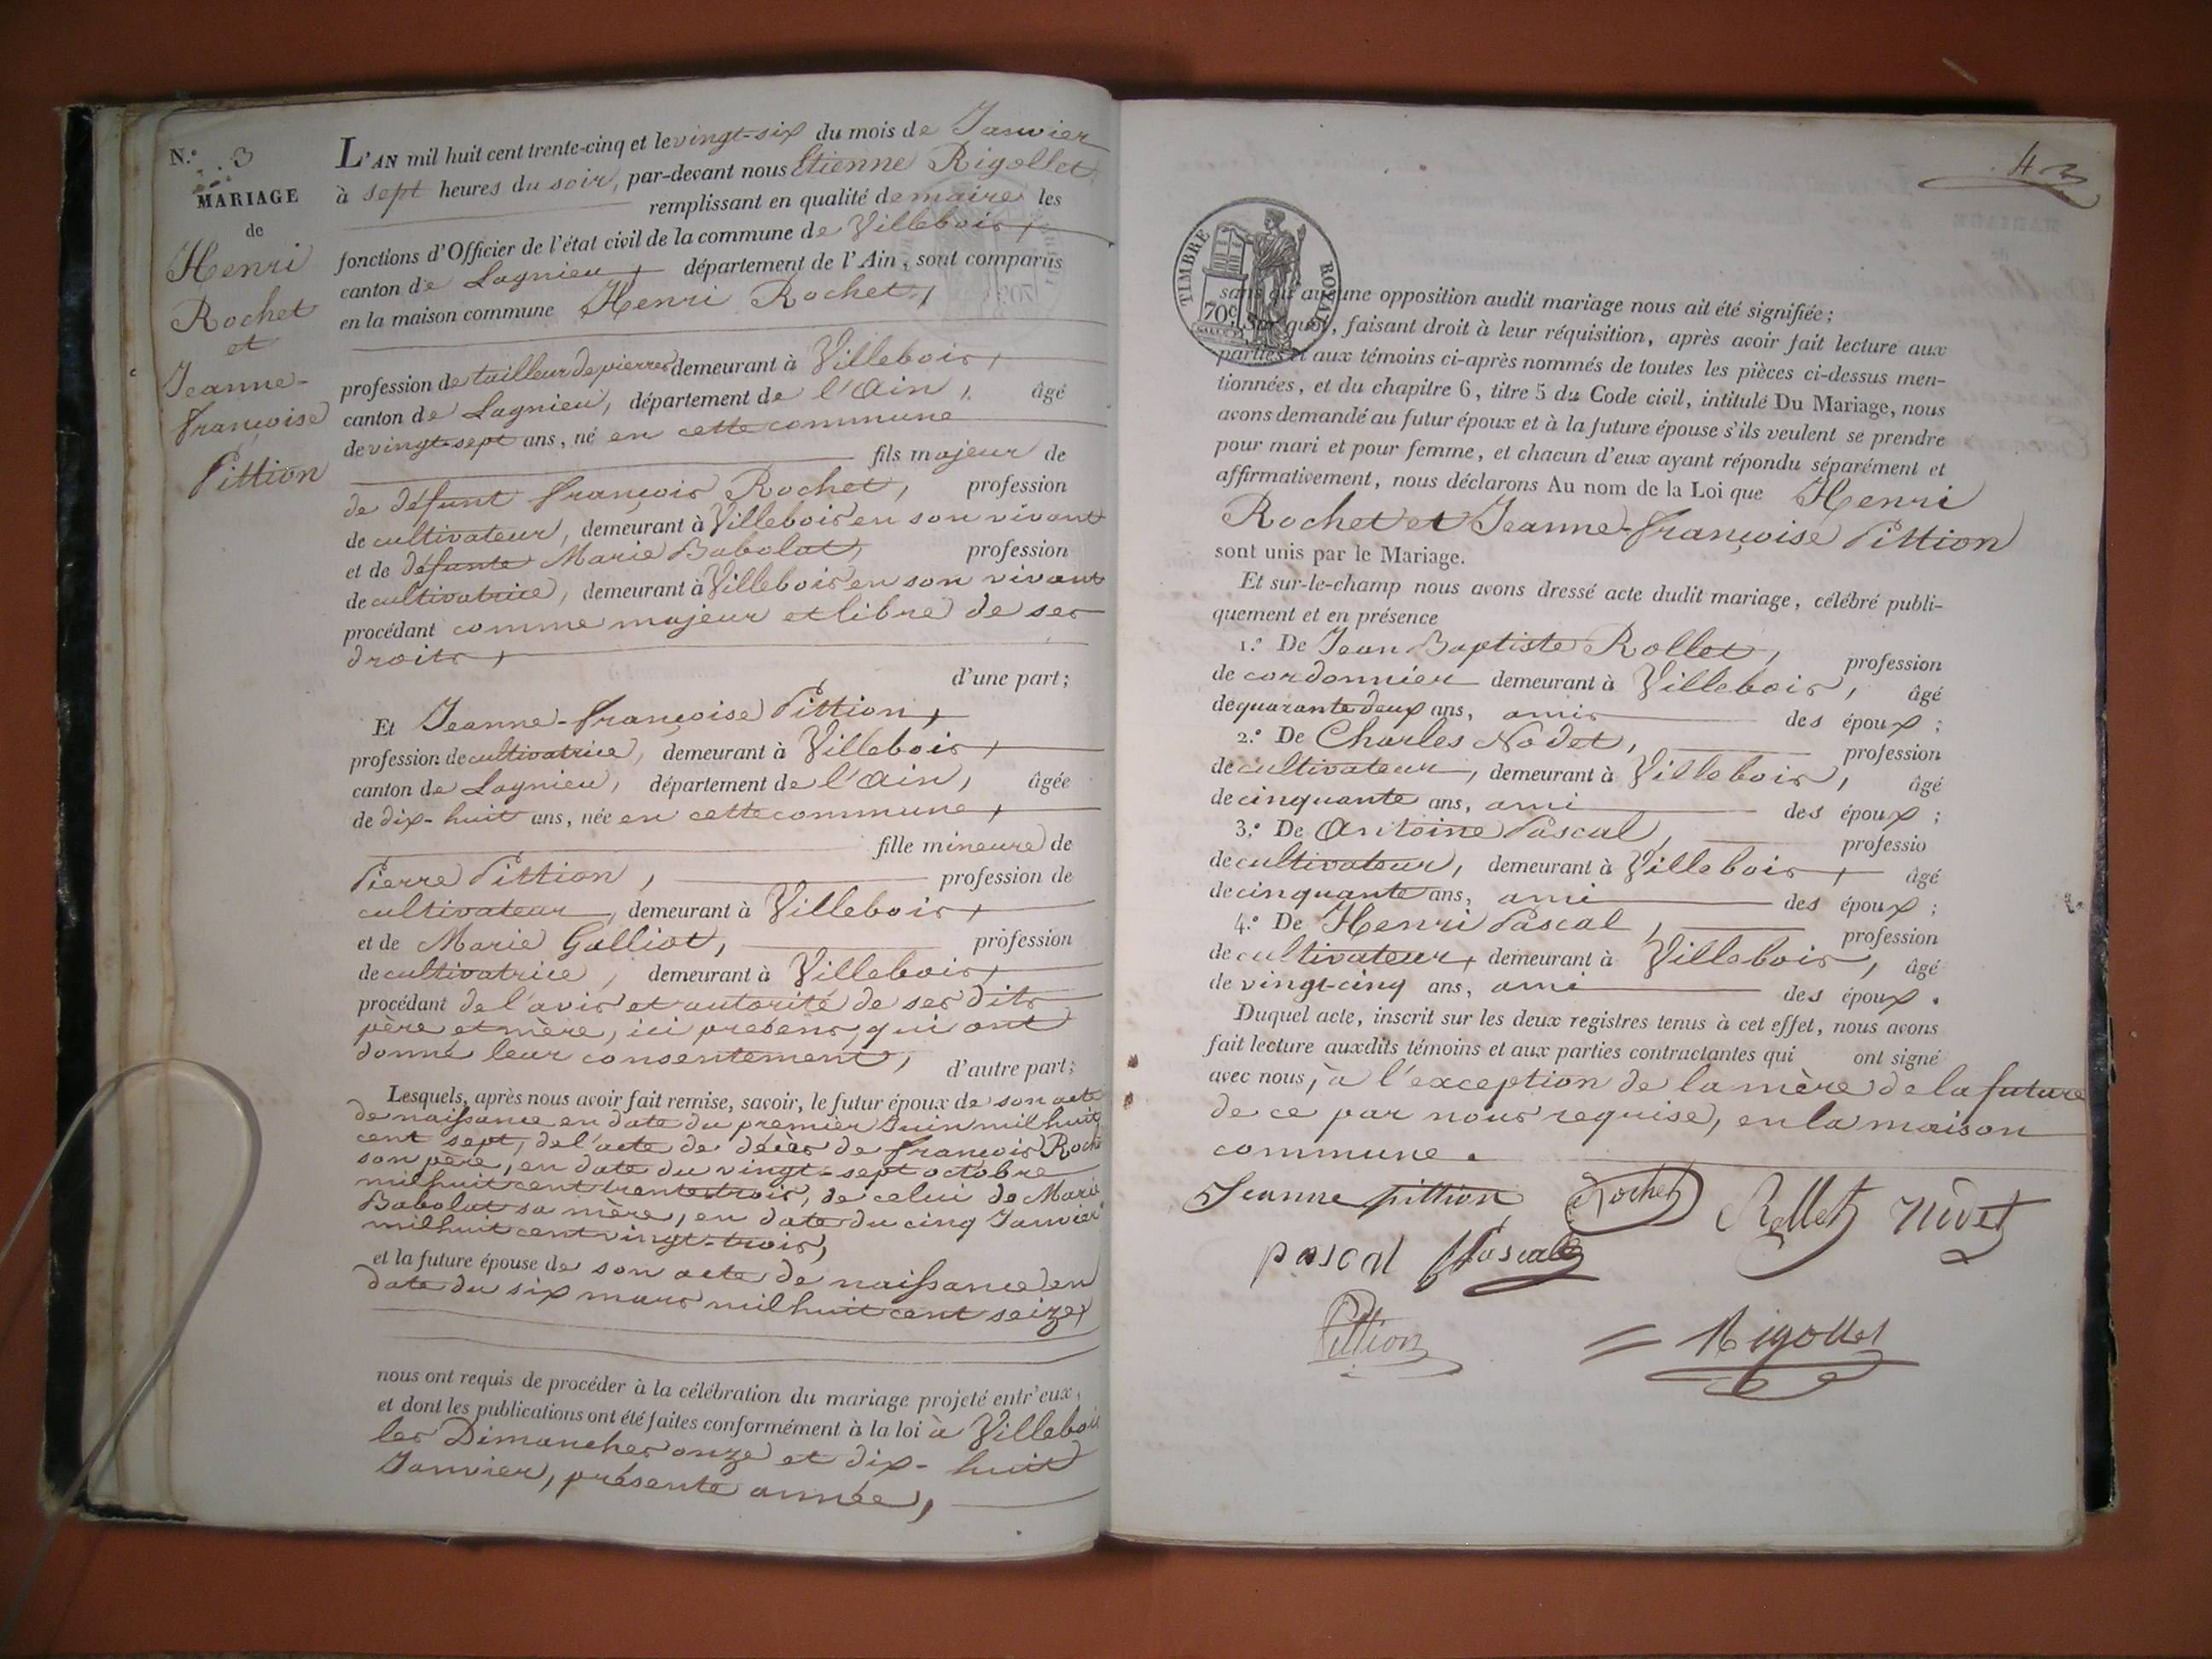 N.º 3
MARIAGE
de
Henri
Rochet
et
Jeanne-
françoise
Pittion
L'AN mil huit cent trente-cinq et le vingt-six du mois de Janvier
à sept heures du soir, par-devant nous Etienne Rigollet,
remplissant en qualité de maire les
fonctions d'Officier de l'état civil de la commune de Villebois,
canton de Lagnieu, département de l'Ain, sont comparus
en la maison commune Henri Rochet,
profession de tailleur de pierres demeurant à Villebois,
canton de Lagnieu, département de l'Ain, âgé
de vingt-sept ans, né en cette commune
fils majeur de
de défunt françois Rochet, profession
de cultivateur, demeurant à Villebois en son vivant
et de défunte Marie Babolat, profession
de cultivatrice, demeurant à Villebois en son vivant
procédant comme majeur et libre de ses
droits,
d'une part;
Et Jeanne-françoise Pittion,
profession de cultivatrice, demeurant à Villebois,
canton de Lagnieu, département de l'Ain, âgée
de dix-huit ans, née en cette commune,
fille mineure de
Pierre Pittion, profession de
cultivateur, demeurant à Villebois,
et de Marie Galliot, profession
de cultivatrice, demeurant à Villebois,
procédant de l'avis et autorité de ses dits
père et mère, ici présens, qui ont
donné leur consentement,
d'autre part;
Lesquels, après nous avoir fait remise, savoir, le futur époux de son acte
de naissance en date du premier Juin mil huit
cent sept, de l'acte de décès de françois Roch
son père, en date du vingt-sept octobre
mil huit cent trente trois, de celui de Marie
Babolat sa mère, en date du cinq Janvier
mil huit cent vingt-trois,
et la future épouse de son acte de naissance en
date du six mars mil huit cent seize,
nous ont requis de procéder à la célébration du mariage projeté entr'eux,
et dont les publications ont été faites conformément à la loi à Villebois
les Dimanches onze et dix-huit
Janvier, présente année,
43
TIMBRE ROYAL
70c
sans qu'aucune opposition audit mariage nous ait été signifiée;
Sur quoi, faisant droit à leur réquisition, après avoir fait lecture aux
parties et aux témoins ci-après nommés de toutes les pièces ci-dessus men-
tionnées, et du chapitre 6, titre 5 du Code civil, intitulé Du Mariage, nous
avons demandé au futur époux et à la future épouse s'ils veulent se prendre
pour mari et pour femme, et chacun d'eux ayant répondu séparément et
affirmativement, nous déclarons Au nom de la Loi que Henri
Rochet et Jeanne-françoise Pittion
sont unis par le Mariage.
Et sur-le-champ nous avons dressé acte dudit mariage, célébré publi-
quement et en présence
1.º De Jean Baptiste Rollet, profession
de cordonnier demeurant à Villebois, âgé
de quarante deux ans, amis des époux;
2.º De Charles Nodet, profession
de cultivateur, demeurant à Villebois, âgé
de cinquante ans, ami des époux;
3.º De Antoine Pascal, professio
de cultivateur, demeurant à Villebois, âgé
de cinquante ans, ami des époux;
4.º De Henri Pascal, profession
de cultivateur, demeurant à Villebois, âgé
de vingt-cinq ans, ami des époux.
Duquel acte, inscrit sur les deux registres tenus à cet effet, nous avons
fait lecture auxdits témoins et aux parties contractantes qui ont signé
avec nous, à l'exception de la mère de la future
de ce par nous requise, en la maison
commune.
Jeanne pittion Rochet Rollet nodet
pascal Pascal
Pittion Rigollet